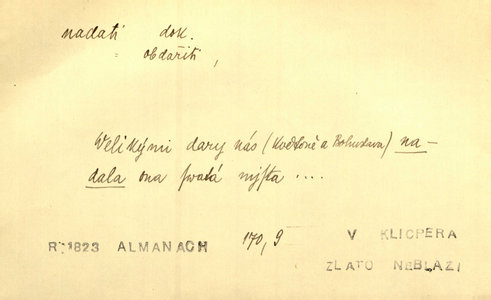 nadati dok.
= obdařiti,
Welikými dary nás (Kodloně a Bohuslava) na-
dala ona swatá mjsta ....
R. 1823 ALMANACH 170, 9 V KLICPERA
ZLATO NEBLAZI